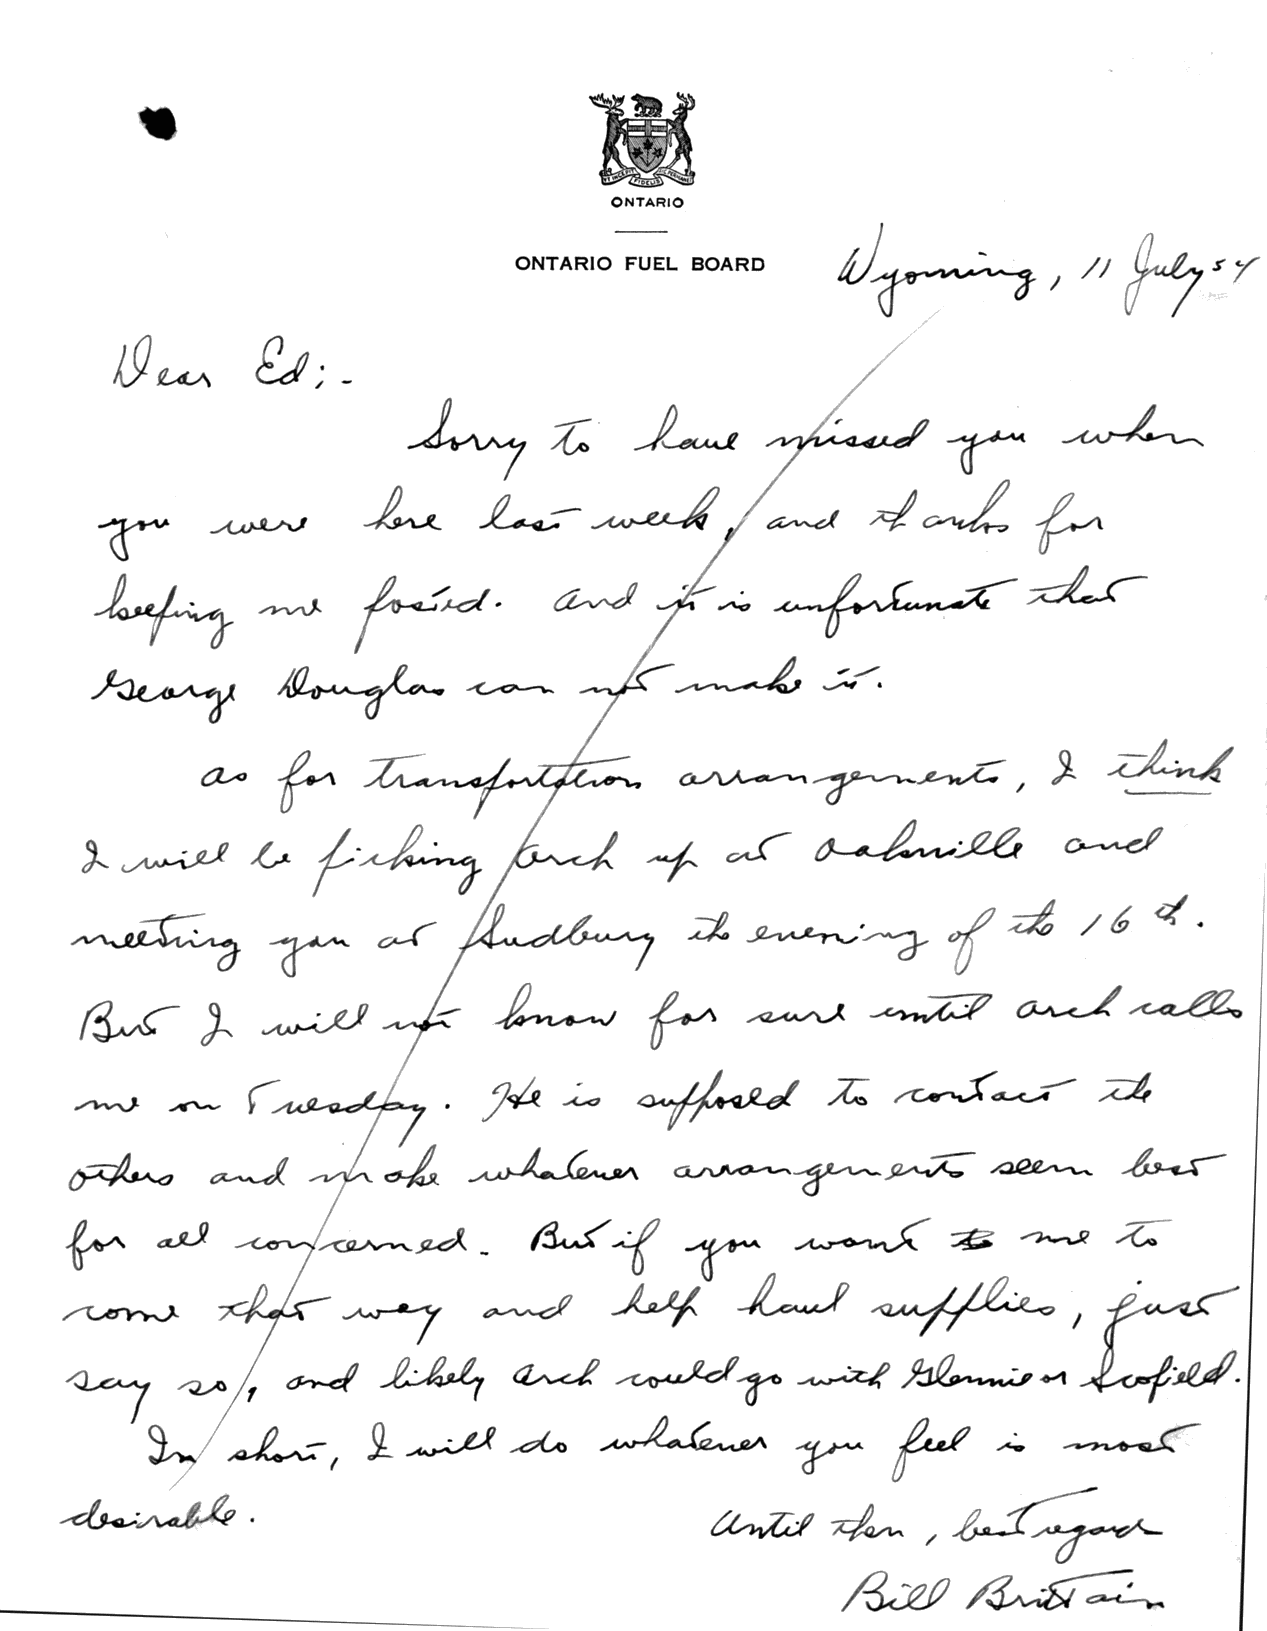 UT INCEPIT FIDELIS SIC PERMANET
ONTARIO
ONTARIO FUEL BOARD
Wyoming, 11 July 54
Dear Ed:-
Sorry to have missed you when
you were here last week, and thanks for
keeping me posted. And it is unfortunate that
George Douglas can not make it.
As for transportation arrangements, I think
I will be picking Arch up at Oakville and
meeting you at Sudbury the evening of the 16th.
But I will not know for sure until Arch calls
me on Tuesday. He is supposed to contact the
others and make whatever arrangements seem best
for all concerned. But if you want to me to
come that way and help haul supplies, just
say so, and likely Arch could go with Glennie or Scofield.
In short, I will do whatever you feel is most
desirable.
Until then, best regards
Bill Brittain